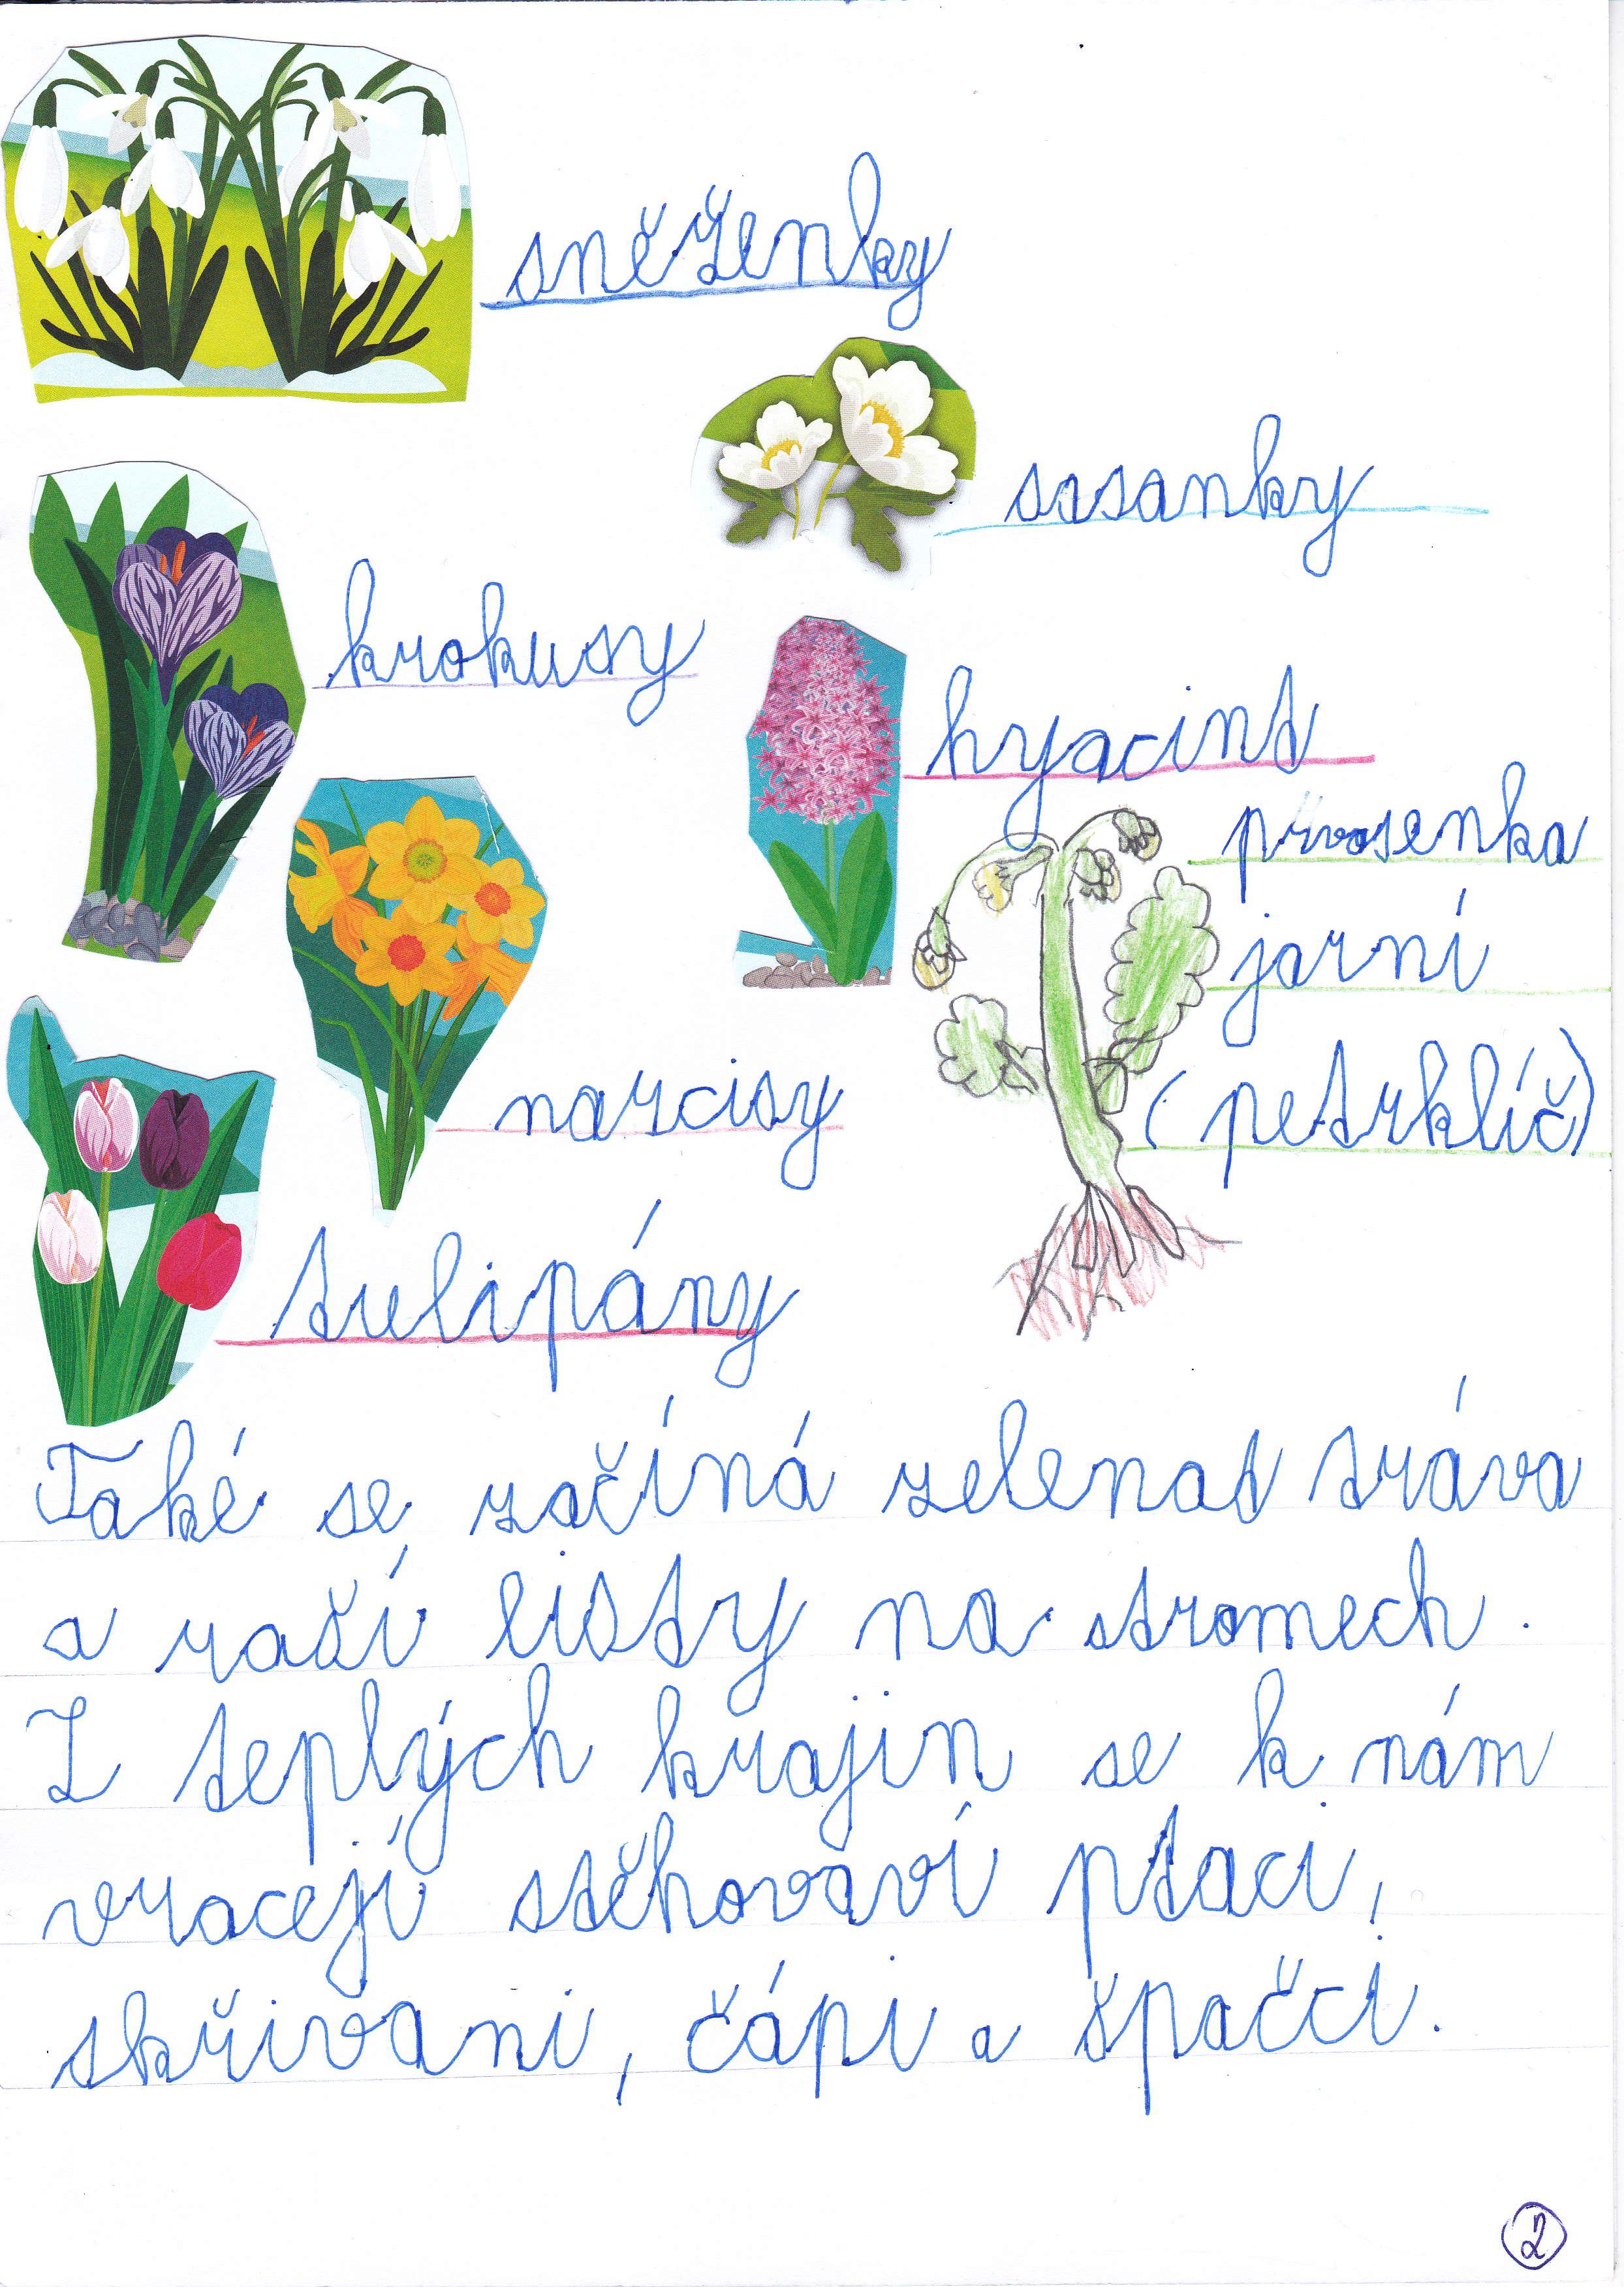 sněženky
sasanky
krokusy
hyacint
prvosenka
jarní
(petrklíč)
narcisy
tulipány
Také se začíná zelenat tráva
a raší listy na stromech.
Z teplých krajin se k nám
vracejí stěhovaví ptaci,
skřivani, čápi a špačci.
2